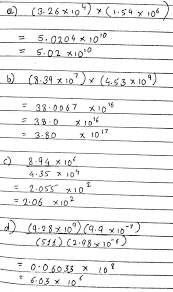 a) (3.26 x 10⁴) x (1.54 x 10⁶)
= 5.0204 x 10¹⁰
= 5.02 x 10¹⁰
b) (8.39 x 10⁷) x (4.53 x 10⁹)
= 38.0067 x 10¹⁶
= 38.0 x 10¹⁶
= 3.80 x 10¹⁷
c) 8.94 x 10⁶
4.35 x 10⁴
= 2.055 x 10²
= 2.06 x 10²
d) (9.28 x 10⁹) (9.9 x 10⁻⁷)
(511) (2.98 x 10⁻⁶)
= 0.06033 x 10⁸
= 6.03 x 10⁶